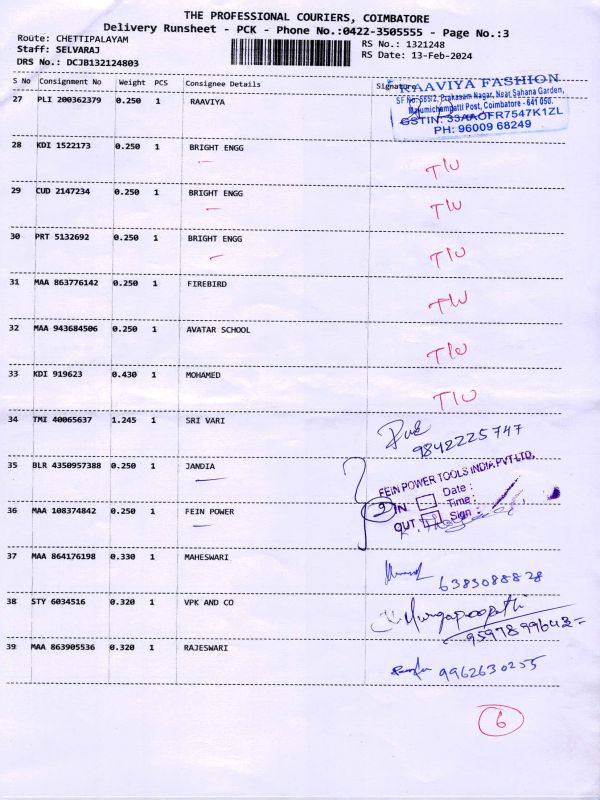 THE PROFESSIONAL COURIERS, COIMBATORE
Delivery Runsheet - PCK - Phone No.:0422-3505555 - Page No.:3
Route: CHETTIPALAYAM
Staff: SELVARAJ
DRS No.: DCJB132124803
RS No.: 1321248
RS Date: 13-Feb-2024
S No Consignment No Weight PCS Consignee Details Signature
27 PLI 200362379 0.250 1 RAAVIYA
RAAVIYA FASHION
Prakasam Nagar, Near Sahana Garden,
Post, Coimbatore - 641 050.
GSTIN: 33AAOFR7547K1ZL
PH: 96009 68249
28 KDI 1522173 0.250 1 BRIGHT ENGG T/U
29 CUD 2147234 0.250 1 BRIGHT ENGG T/U
30 PRT 5132692 0.250 1 BRIGHT ENGG T/U
31 MAA 863776142 0.250 1 FIREBIRD T/U
32 MAA 943684506 0.250 1 AVATAR SCHOOL T/U
33 KDI 919623 0.430 1 MOHAMED T/U
34 TMI 40065637 1.245 1 SRI VARI
9842225747
35 BLR 4350957388 0.250 1 JANDIA
FEIN POWER TOOLS INDIA PVT LTD.
2 IN Date :
Time :
OUT Sign :
36 MAA 108374842 0.250 1 FEIN POWER
37 MAA 864176198 0.330 1 MAHESWARI
6383088828
38 STY 6034516 0.320 1 VPK AND CO
39 MAA 863905536 0.320 1 RAJESWARI
9962630255
6